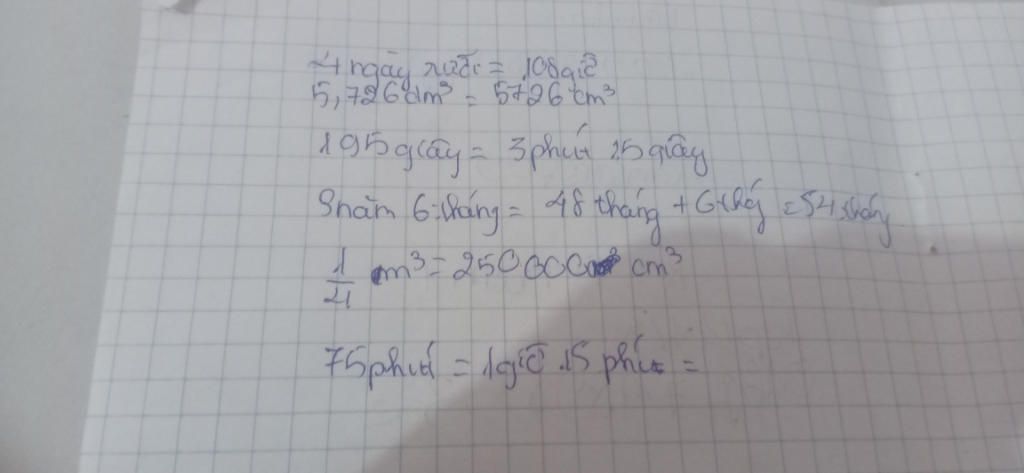 4 ngày rưỡi = 108 giờ
5,726 dm³ = 5726 cm³
195 giây = 3 phút 15 giây
8 năm 6 tháng = 48 tháng + 6 tháng = 54 tháng
1/4 m³ = 250000 cm³
75 phút = 1 giờ 15 phút =